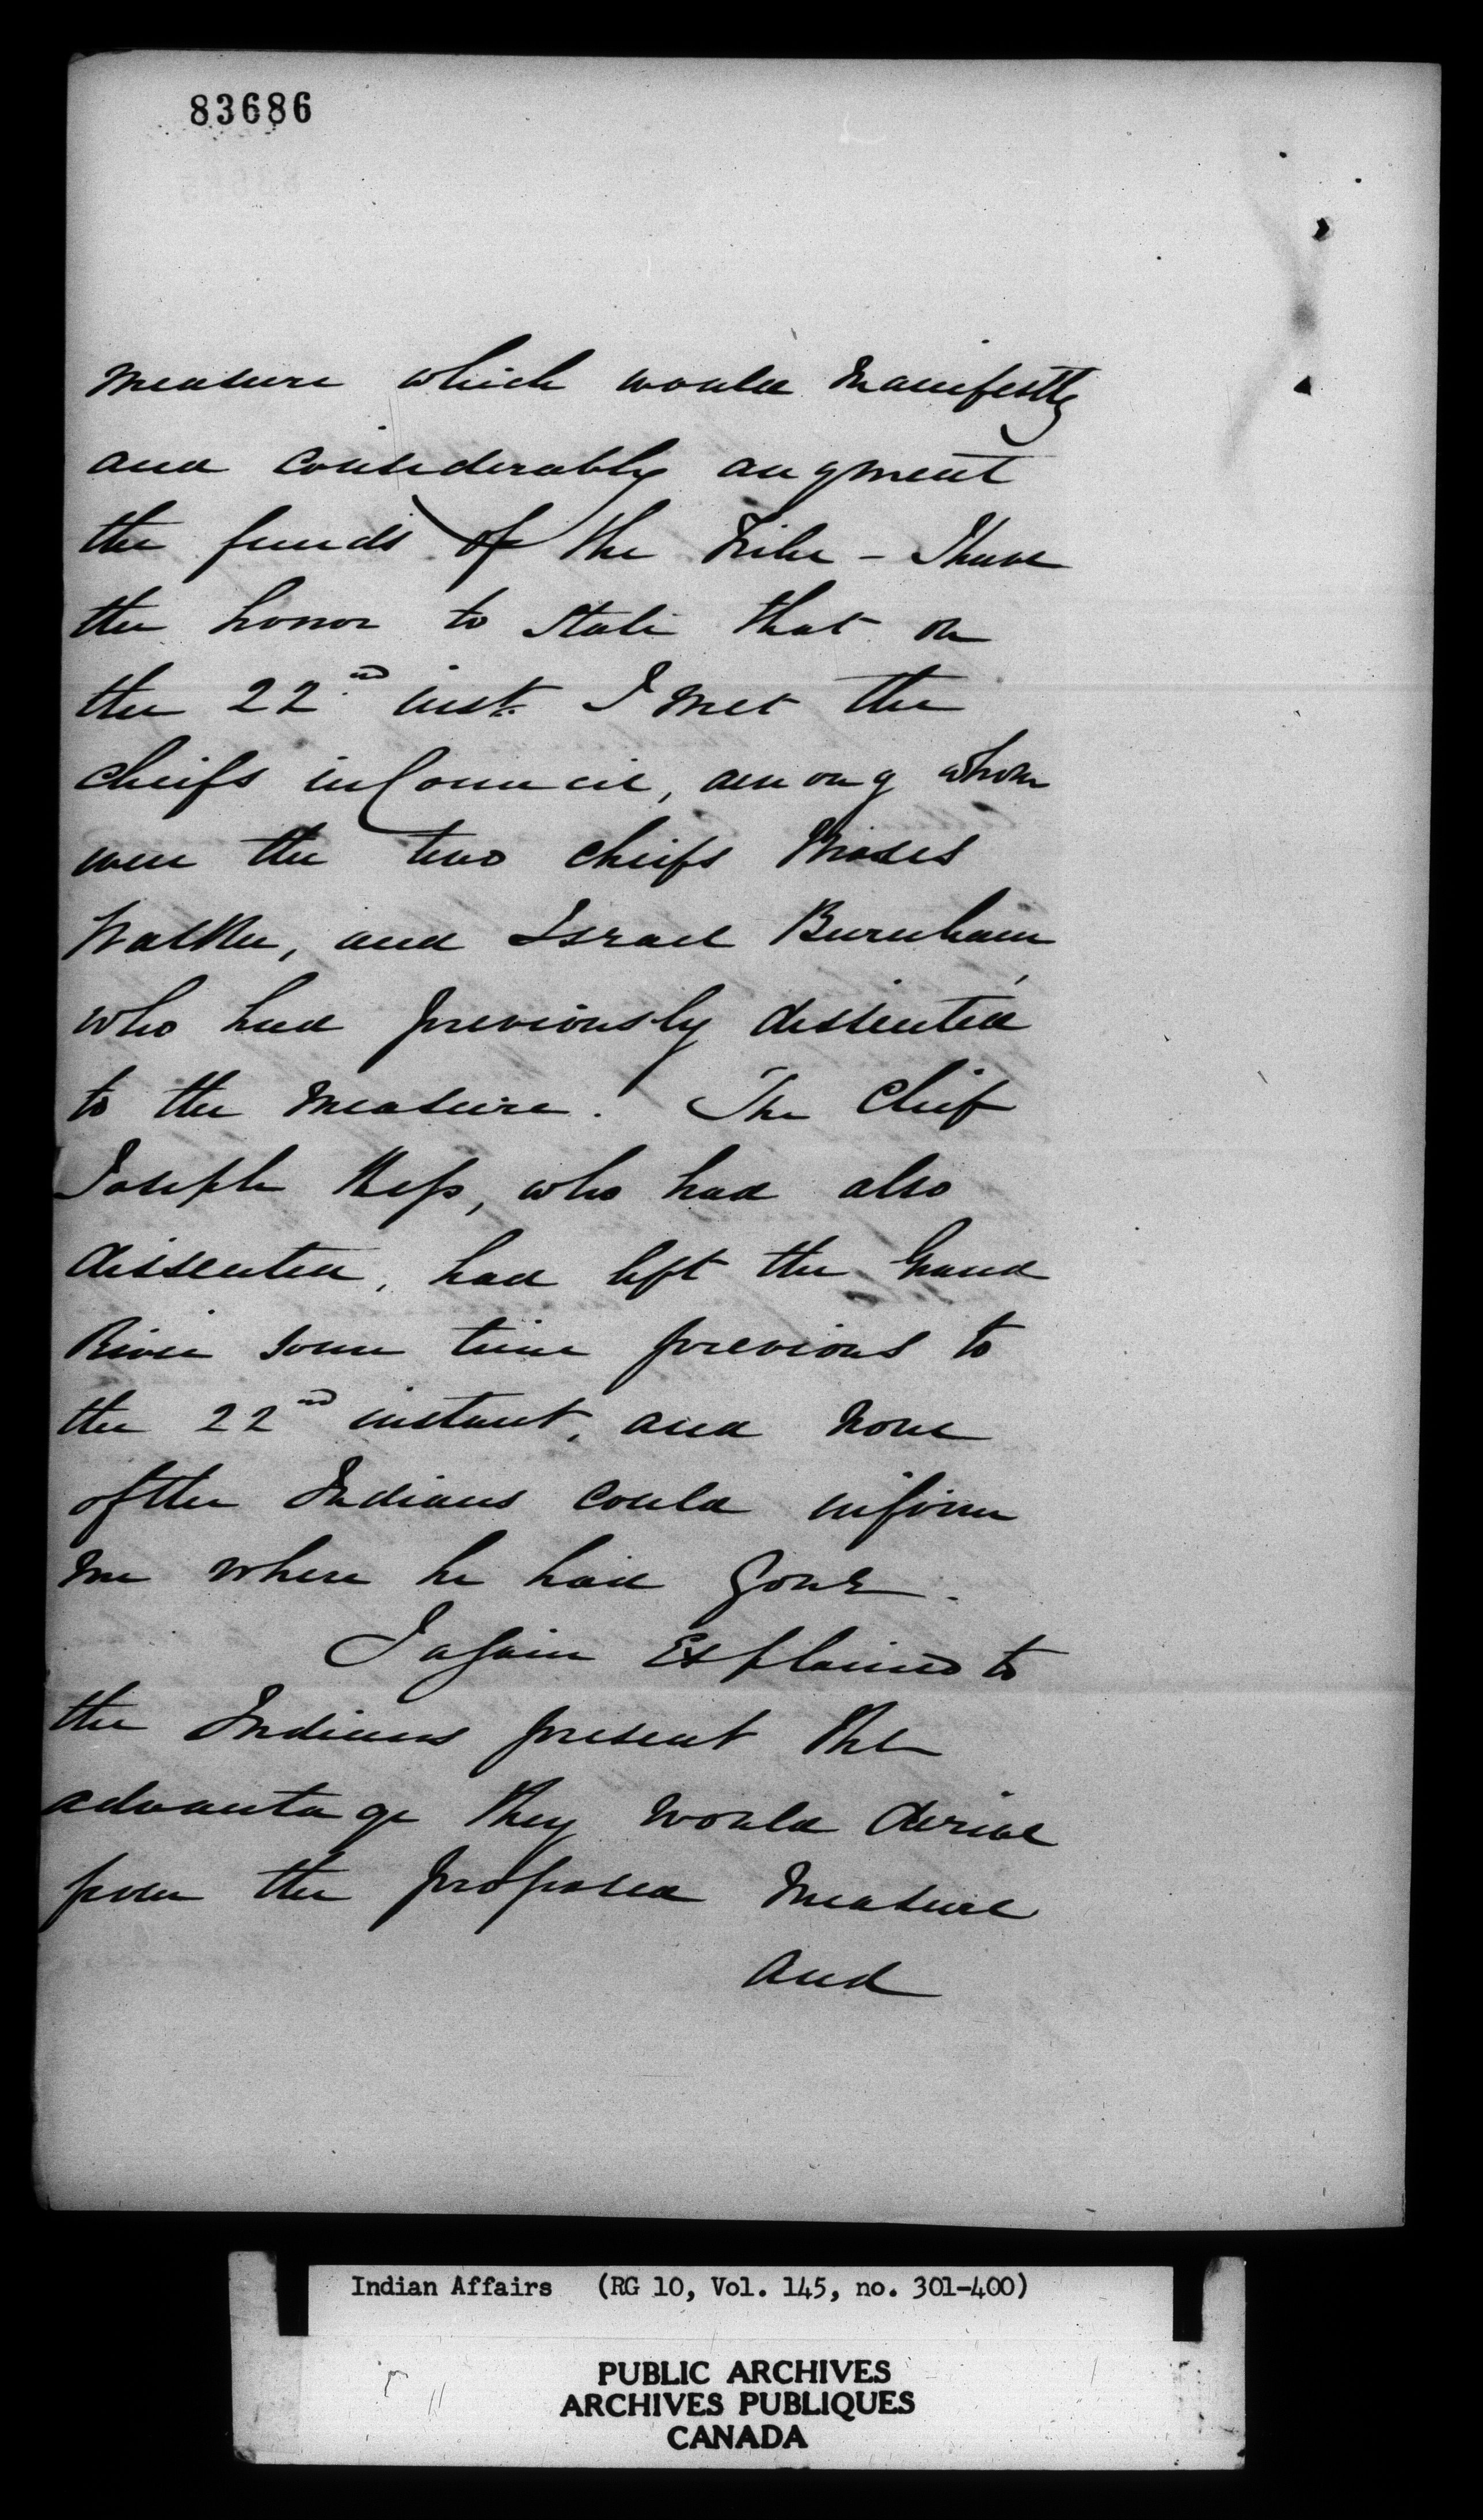 83686
measure which would manifestly
and considerably augment
the funds of the Tribe - I have
the honor to state that on
the 22nd inst. I met the
chiefs in Council, among whom
were the two chiefs Moses
Walker, and Israel Burnham,
who had previously dissented
to the measure. The chief
Joseph Hess, who had also
dissented, had left the Grand
River some time previous to
the 22nd instant, and none
of the Indians could inform
me where he had gone.
I again explained to
the Indians present the
advantage they would derive
from the proposed measure
and
Indian Affairs (RG 10, Vol. 145, no. 301-400)
PUBLIC ARCHIVES
ARCHIVES PUBLIQUES
CANADA